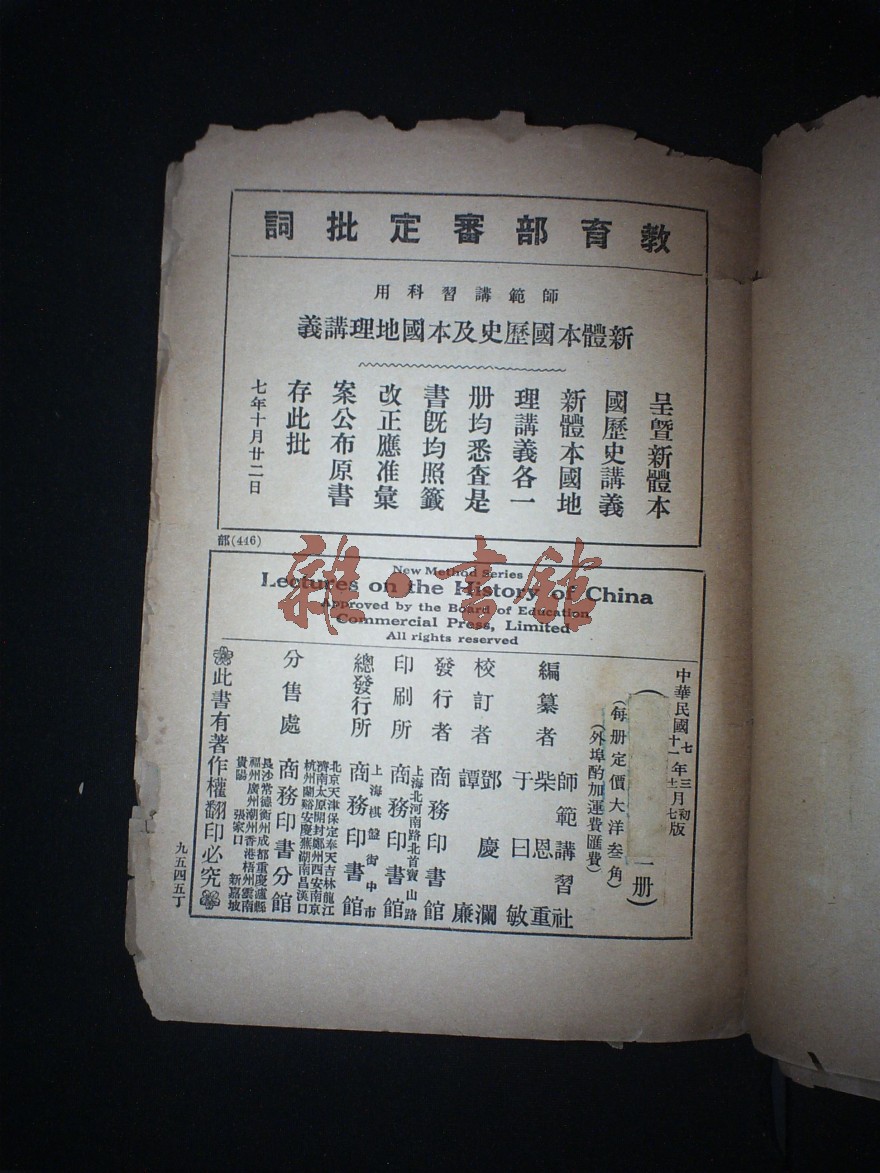 教育部審定批詞
師範講習科用
新體本國歷史及本國地理講義
呈暨新體本
國歷史講義
新體本國地
理講義各一
册均悉査是
書旣均照籤
改正應准彙
案公布原書
存此批
七年十月廿二日
部(446)
雜·書館
New Method Series
Lectures on the History of China
Approved by the Board of Education
Commercial Press, Limited
All rights reserved
中華民國七年三月初版
十一年十二月七版
一册
(每册定價大洋叁角)
(外埠酌加運費匯費)
編纂者
師範講習社
柴恩重
于曰敏
校訂者
鄧慶瀾
譚廉
發行者
商務印書館
印刷所
上海北河南路北首寶山路
商務印書館
總發行所
上海棋盤街中市
商務印書館
分售處
北京天津保定奉天吉林龍江
濟南太原開封鄭州西安南京
杭州蘭谿安慶蕪湖南昌漢口
商務印書分館
長沙常德衡州成都重慶瀘縣
福州廣州潮州香港梧州雲南
貴陽 張家口 新嘉坡
此書有著作權翻印必究
九五四五丁